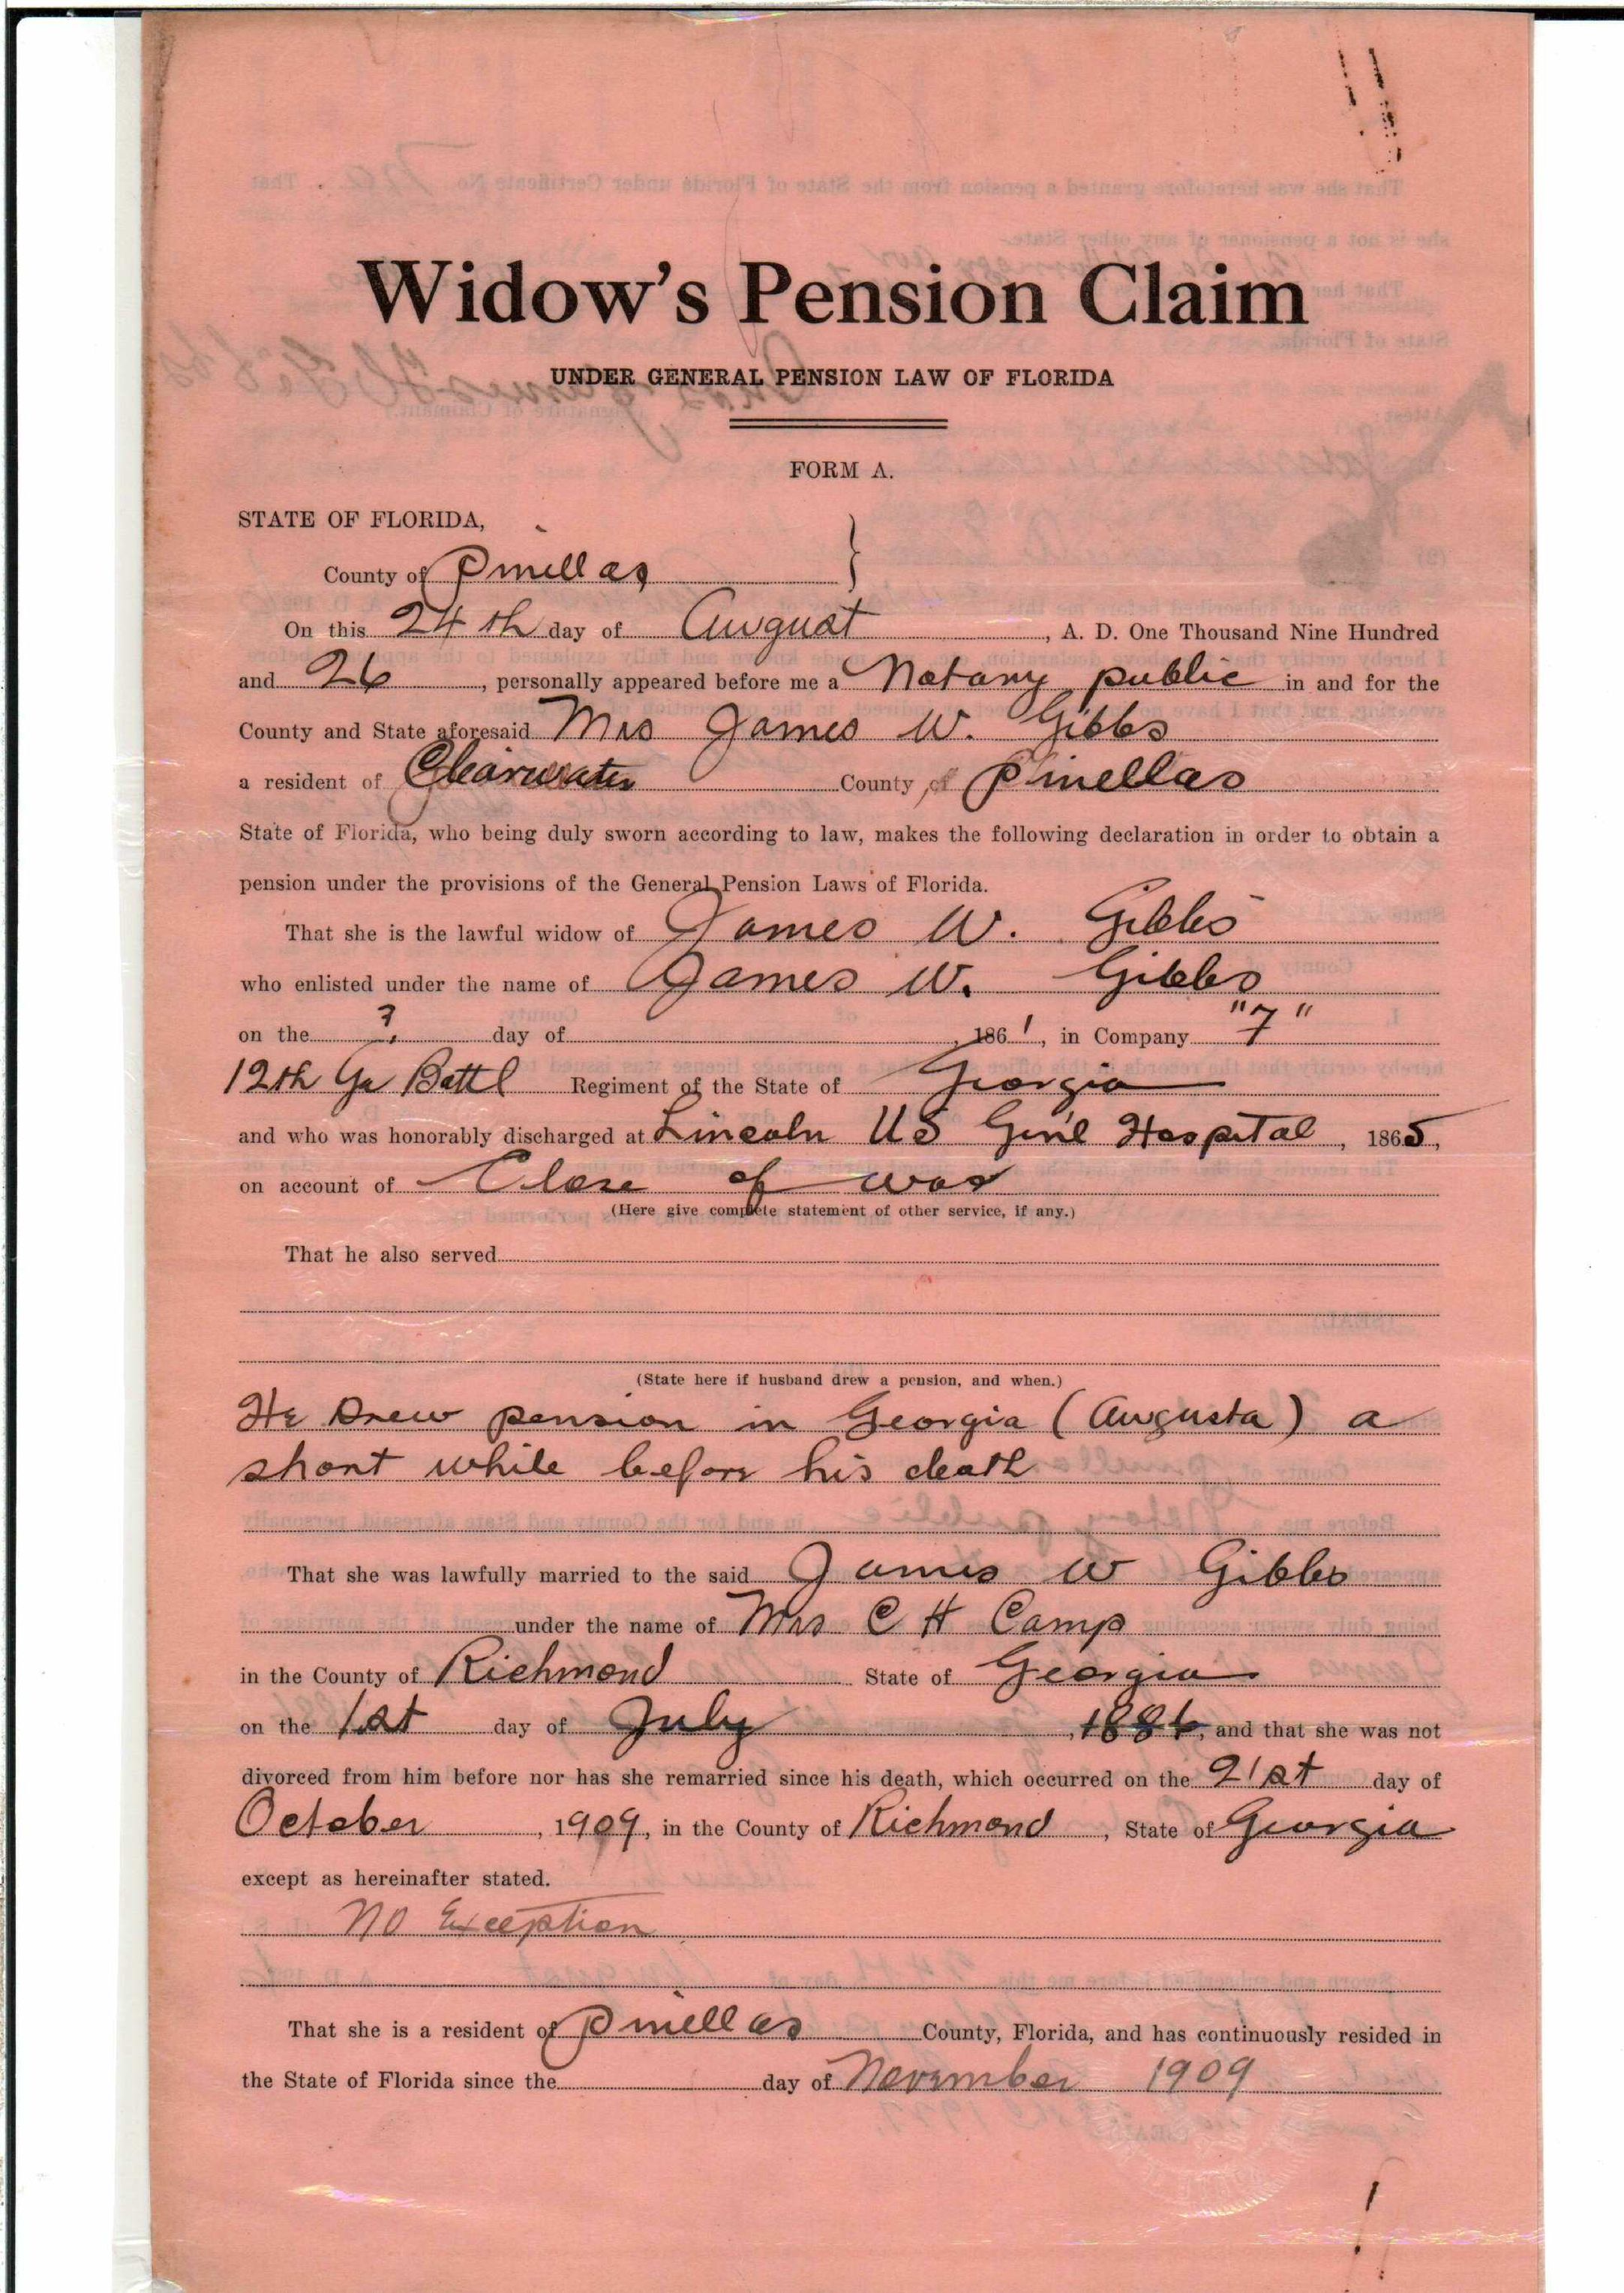 Widow's Pension Claim
UNDER GENERAL PENSION LAW OF FLORIDA
FORM A.
STATE OF FLORIDA,
County of Pinellas
On this 24th day of August , A. D. One Thousand Nine Hundred
and 26 , personally appeared before me a Notary public in and for the
County and State aforesaid Mrs James W. Gibbs
a resident of Clearwater County of Pinellas
State of Florida, who being duly sworn according to law, makes the following declaration in order to obtain a
pension under the provisions of the General Pension Laws of Florida.
That she is the lawful widow of James W. Gibbs
who enlisted under the name of James W. Gibbs
on the ? day of , 1861, in Company "7"
12th Ga Battl Regiment of the State of Georgia
and who was honorably discharged at Lincoln US Gen'l Hospital , 1865,
on account of Close of war
(Here give complete statement of other service, if any.)
That he also served
(State here if husband drew a pension, and when.)
He Drew pension in Georgia (Augusta) a
short while before his death
That she was lawfully married to the said James W Gibbs
under the name of Mrs C H Camp
in the County of Richmond State of Georgia
on the 1st day of July , 1886, and that she was not
divorced from him before nor has she remarried since his death, which occurred on the 21st day of
October , 1909, in the County of Richmond , State of Georgia
except as hereinafter stated.
No Exception
That she is a resident of Pinellas County, Florida, and has continuously resided in
the State of Florida since the day of November 1909